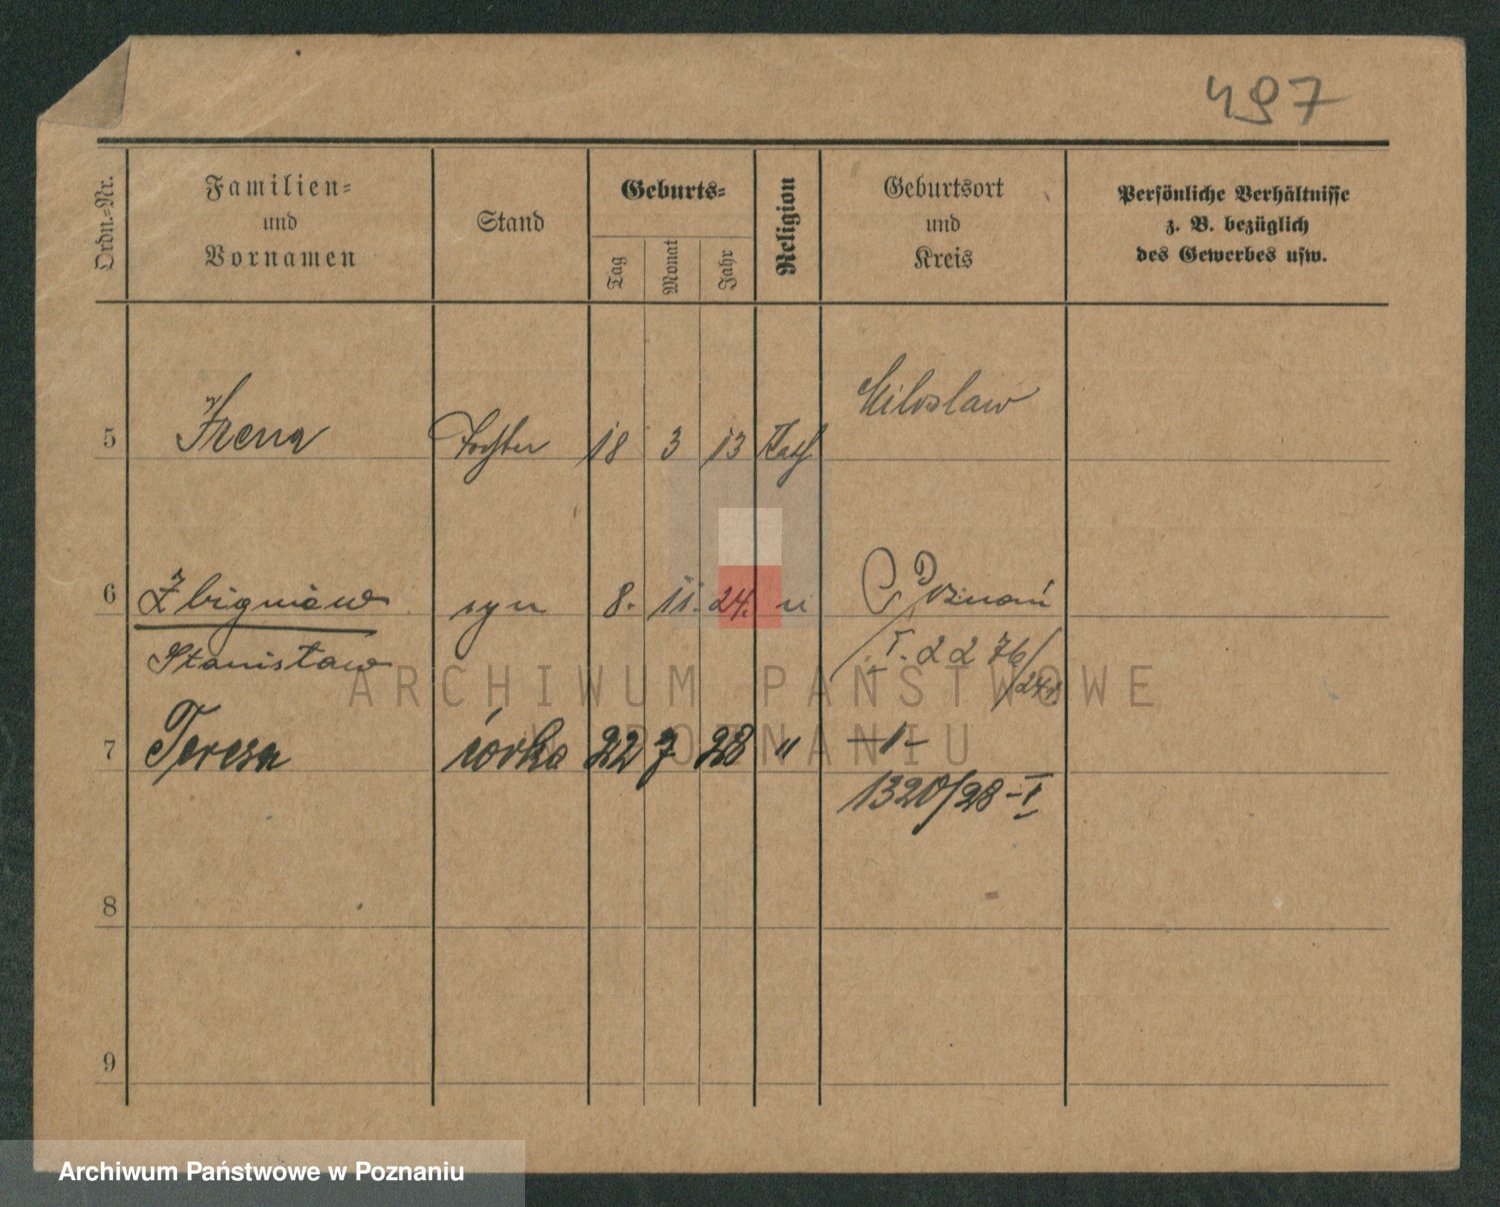 497
Ordn.-Nr.
Familien-
und
Vornamen
Stand
Geburts-
Tag
Monat
Jahr
Religion
Geburtsort
und
Kreis
Persönliche Verhältnisse
z. B. bezüglich
des Gewerbes usw.
Miloslaw
5 Irena Tochter 18 3 13 Kath
6 Zbigniew syn 8. 11. 24. " Poznań
Stanisław I. 2276/24
7 Teresa córka 22 7 28 " -"-
1320/28-I
8
9
ARCHIWUM PAŃSTWOWE
W POZNANIU
Archiwum Państwowe w Poznaniu